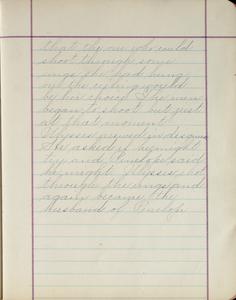 that the one who could
shoot through some
rings she had hung
on the ceiling would
be her choice. The men
began to shoot but just
at that moment
Ulysses arrived in disguise
He asked if he might
try and Penelope said
he might. Ulysses shot
through the rings and
again became the
husband of Penelope